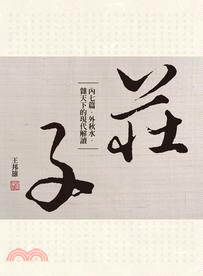 莊子
內七篇·外秋水·
雜天下的現代解讀
王邦雄
三民